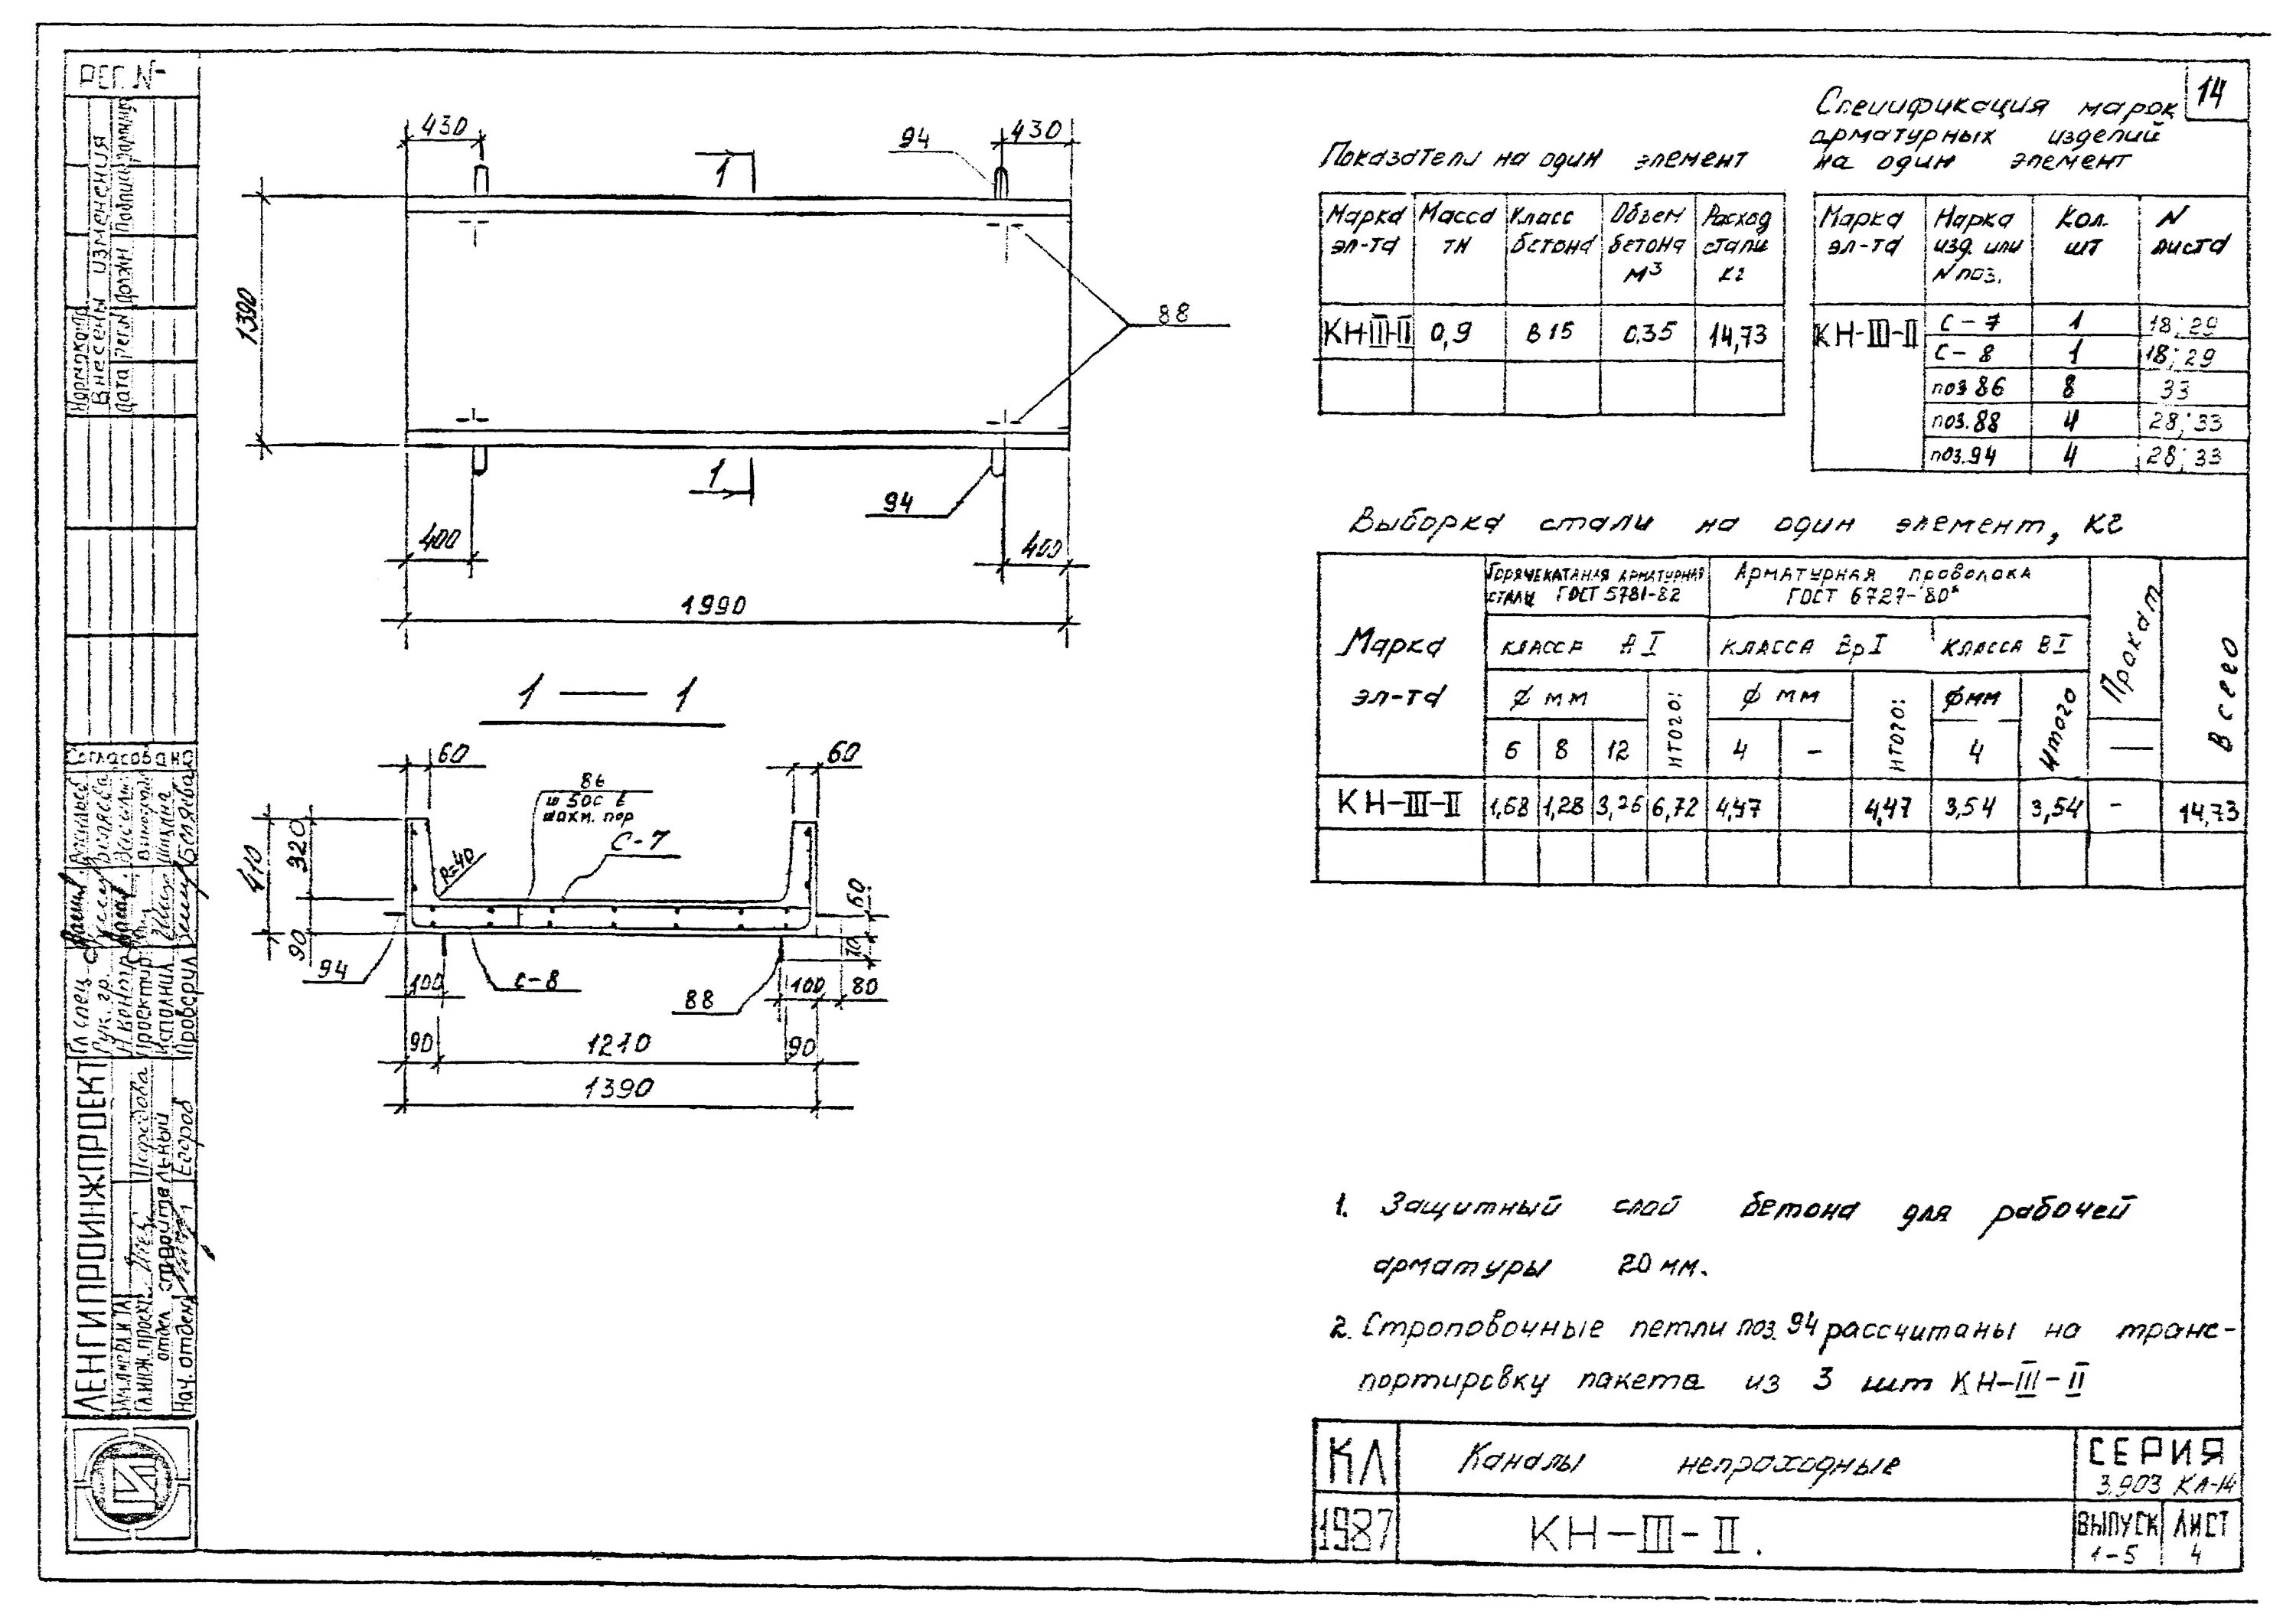 14
430
94
430
1
1390
88
1
94
400
400
1990
1 — 1
60
60
86
ш 500 в
шахм. пор
С-7
R=40
410
320
90
60
70
94
100
С-8
88
100
80
90
1210
90
1390
Показатели на один элемент
Марка эл-та
Масса тн
Класс бетона
Объем бетона м³
Расход стали кг
КН-III-II 0,9 В15 0.35 14,73
Спецификация марок
арматурных изделий
на один элемент
Марка эл-та
Марка изд. или N поз.
Кол. шт
N листа
КН-III-II С-7 1 18; 29
С-8 1 18; 29
поз 86 8 33
поз.88 4 28; 33
поз.94 4 28; 33
Выборка стали на один элемент, кг
Марка эл-та
Горячекатаная арматурная
сталь ГОСТ 5781-82
Арматурная проволока
ГОСТ 6727-80*
Прокат
Всего
класса АI
класса ВрI
класса ВI
ф мм
итого:
ф мм
итого:
ф мм
итого
6 8 12 4 - 4 —
КН-III-II 1,68 1,28 3,76 6,72 4,47 4,47 3,54 3,54 - 14,73
1. Защитный слой бетона для рабочей
арматуры 20 мм.
2. Строповочные петли поз. 94 рассчитаны на транс-
портировку пакета из 3 шт КН-III-II
КЛ
Каналы непроходные
СЕРИЯ
3.903 КЛ-14
1987
КН-III-II.
ВЫПУСК
1-5
ЛИСТ
4
РЕГ. N-
Внесены изменения
Дата
Рег.N
Должн
Согласовано
Гл спец
Рук. гр.
Н.контр
Проектир
Исполнил
Проверил
Беляева
ЛЕНГИПРОИНЖПРОЕКТ
Гл.инж.проект
отдел строительный
Нач. отдела
Егоров